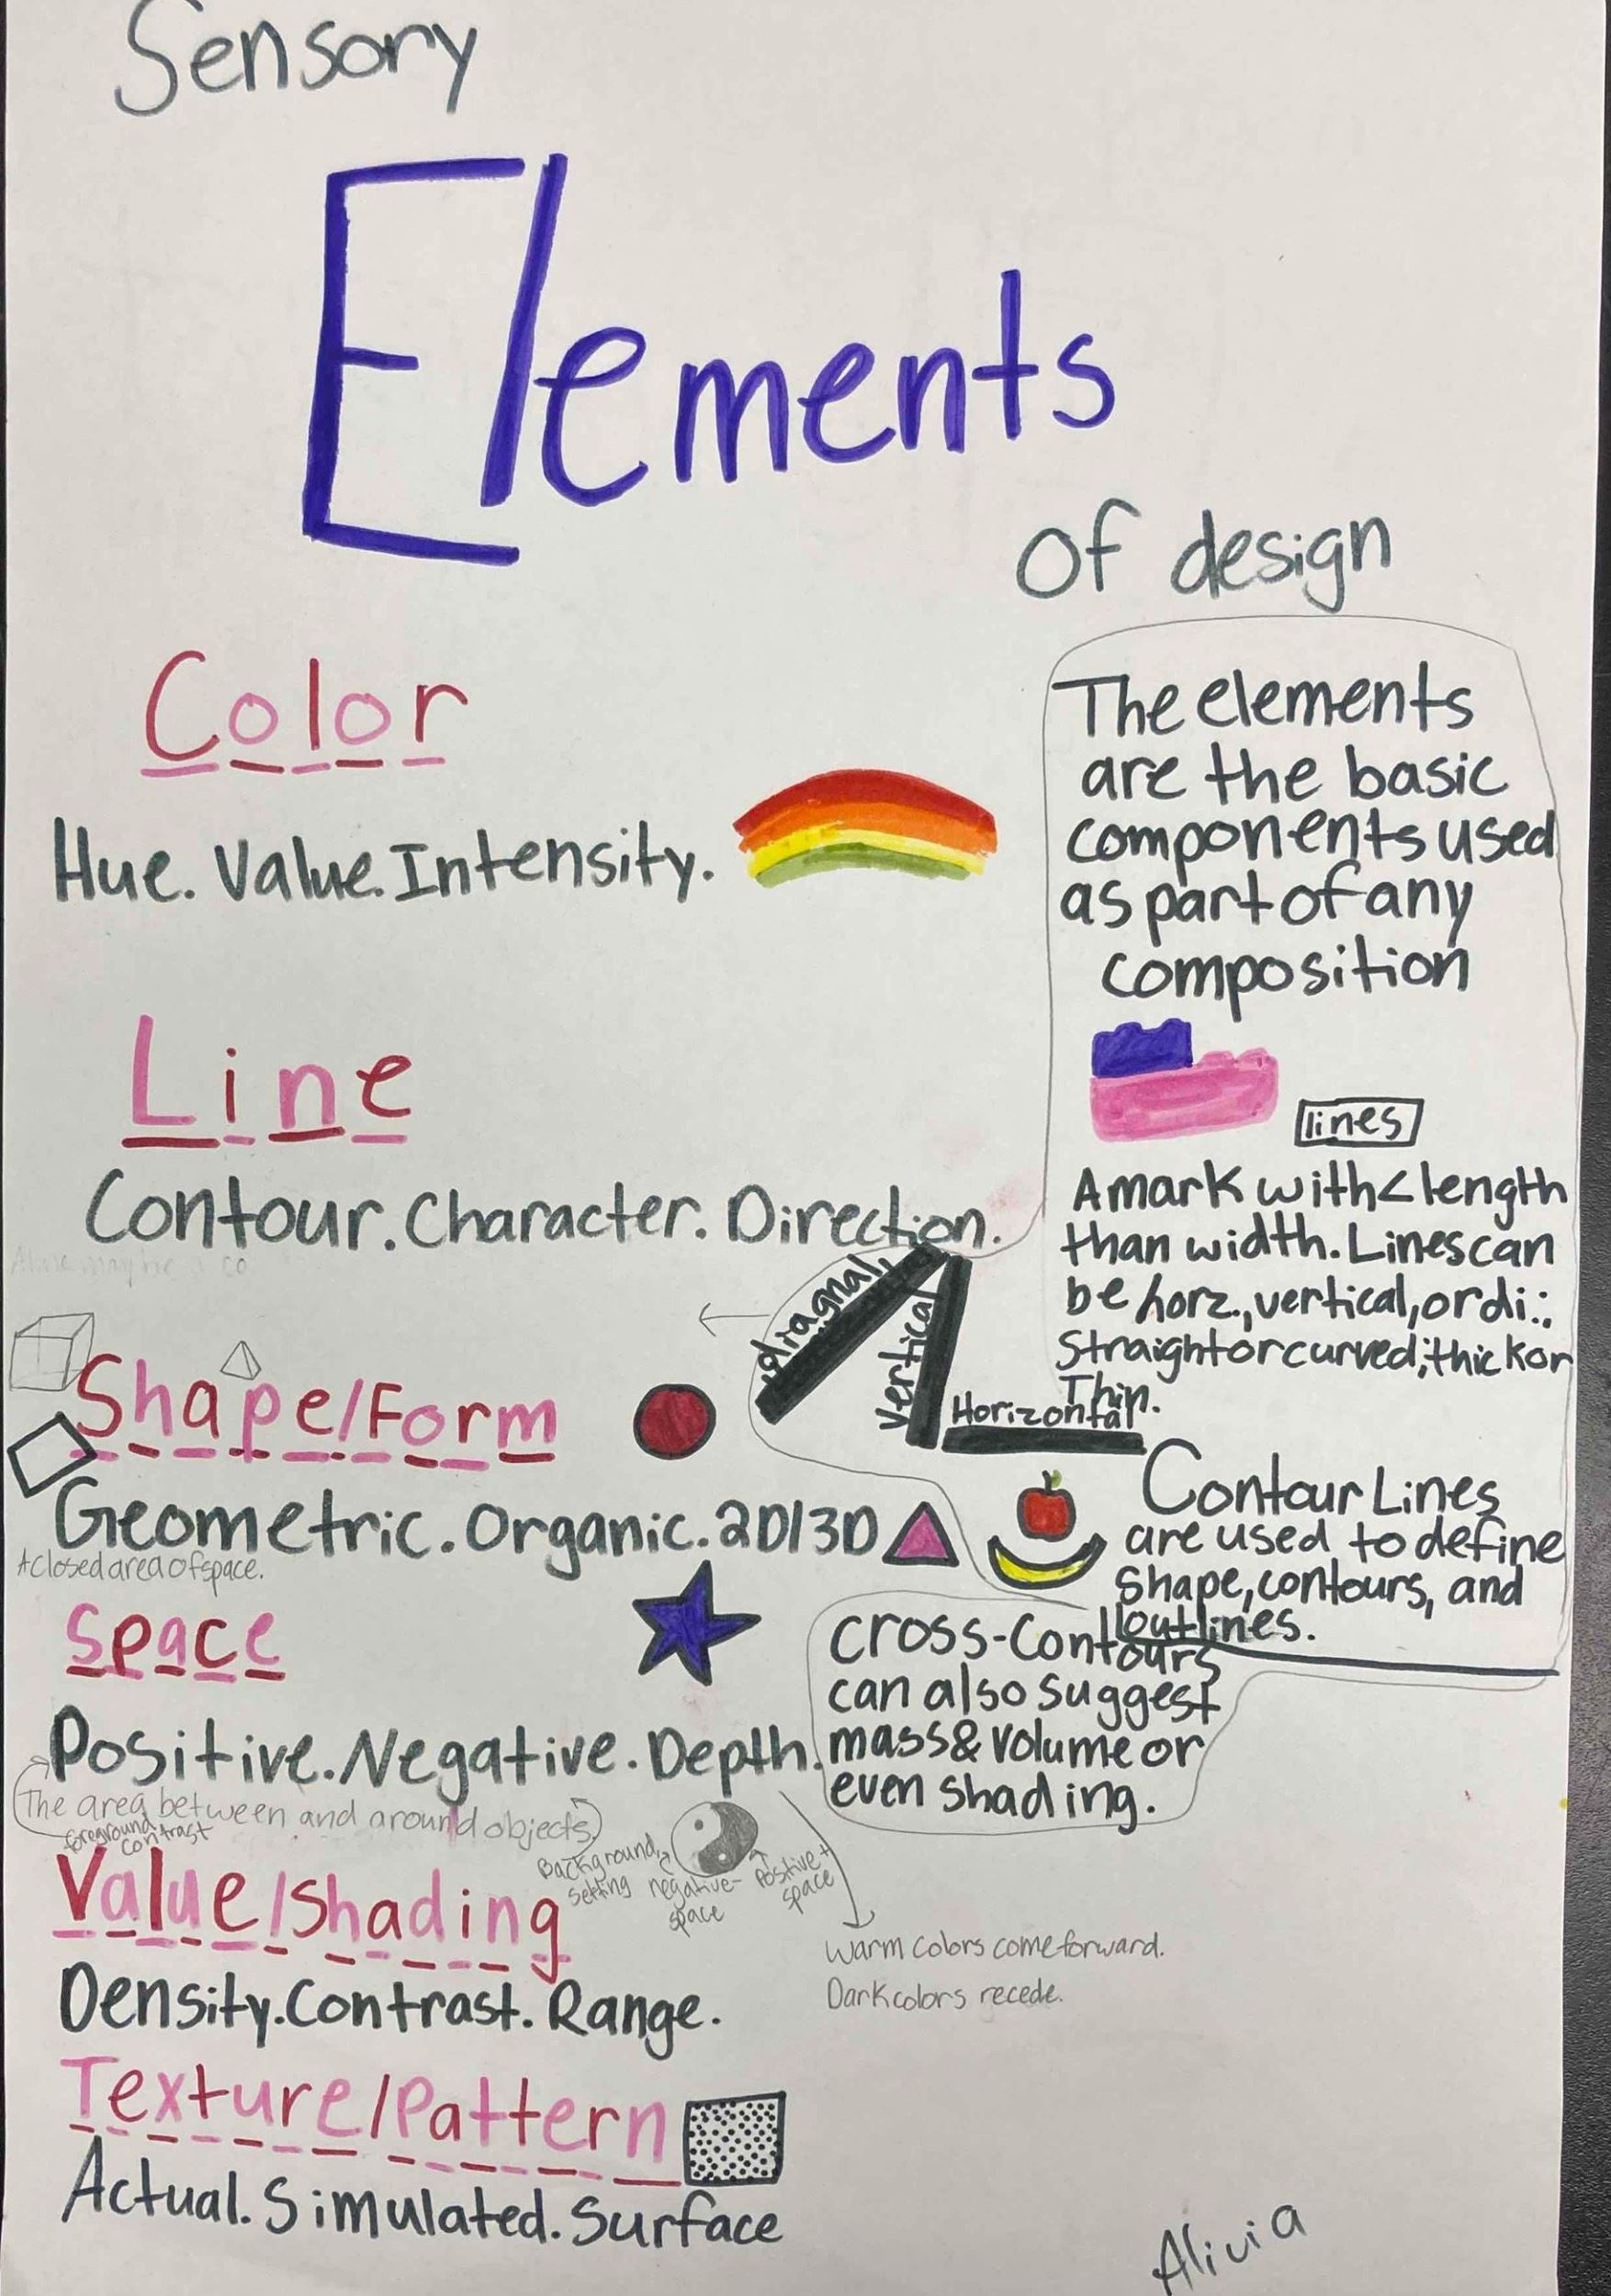 Sensory
Elements
of design
Color
Hue. Value. Intensity.
Line
Contour. Character. Direction.
diagnal
vertical
Horizontal
Shape/Form
Geometric. Organic. 2D/3D
A closed area of space.
Space
Positive. Negative. Depth.
The area between and around objects
foreground
contrast
Background
setting
negative-
space
Positive+
space
Warm colors come forward.
Dark colors recede.
Value/Shading
Density. Contrast. Range.
Texture/Pattern
Actual. Simulated. Surface
The elements
are the basic
components used
as part of any
composition
lines
A mark with < length
than width. Lines can
be horz., vertical, or di.;
Straight or curved; thick or
Thin.
Contour Lines
are used to define
Shape, contours, and
outlines.
Cross-Contours
can also suggest
mass & volume or
even shading.
Alivia